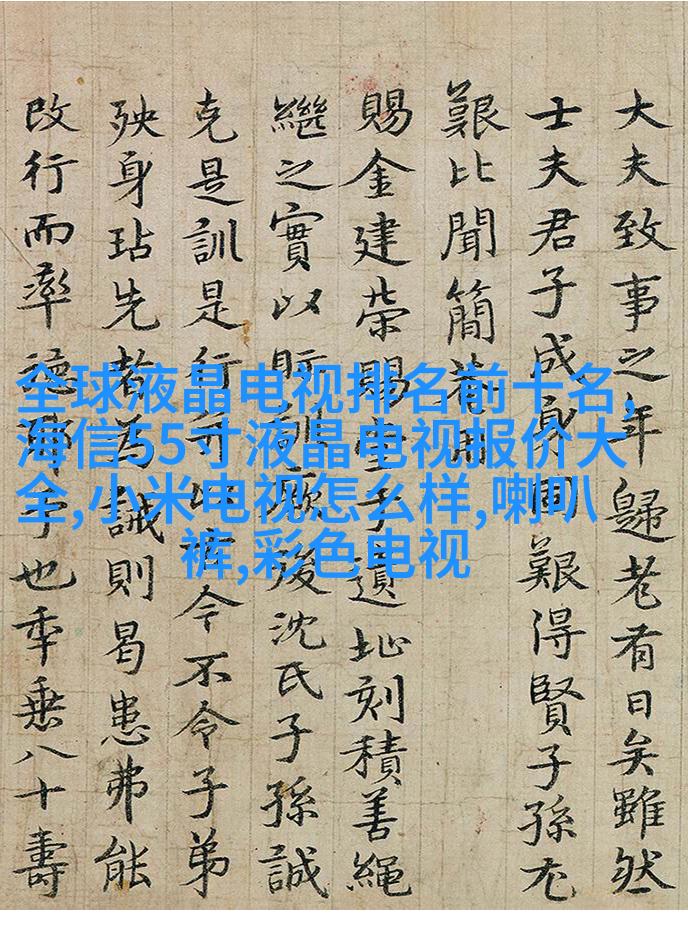 大夫致事之年歸老有日矣雖然
士夫君子成身同艱得賢子孫尤
艱比聞簡
賜金建榮賜堂遺址刻積善繩
繼之實以貽訓厥後沈氏子孫誠
克是訓是行令不令子弟
殃身玷先者為誡則曷患弗能
改行而率德也年垂八十壽
全球液晶电视排名前十名,
海信55寸液晶电视报价大
全,小米电视怎么样,喇叭
裤,彩色电视